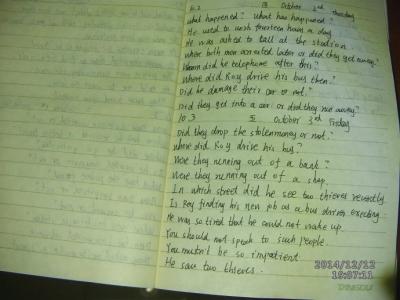 10.2 October 2nd Thursday
What happened? What has happened?
He used to work fourteen hours a day
He was asked to call at the station.
Where both men arrested later or did they get away?
Whom did he telephone after this?
Where did Roy drive his bus then?
Did he damage their car or not?
Did they get into a car or did they run away?
10.3 October 3rd Friday
Did they drop the stolen money or not?
Where did Roy drive his bus?
Were they running out of a bank?
Were they running out of a shop.
In which street did he see two thieves recently
Is Roy finding his new job as a bus driver exciting
He was so tired that he could not wake up.
You should not speak to such people.
You mustn't be so impatient
He saw two thieves.
2014/12/12